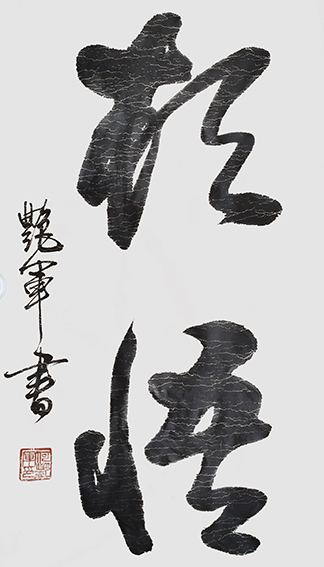 顿悟
艷軍書